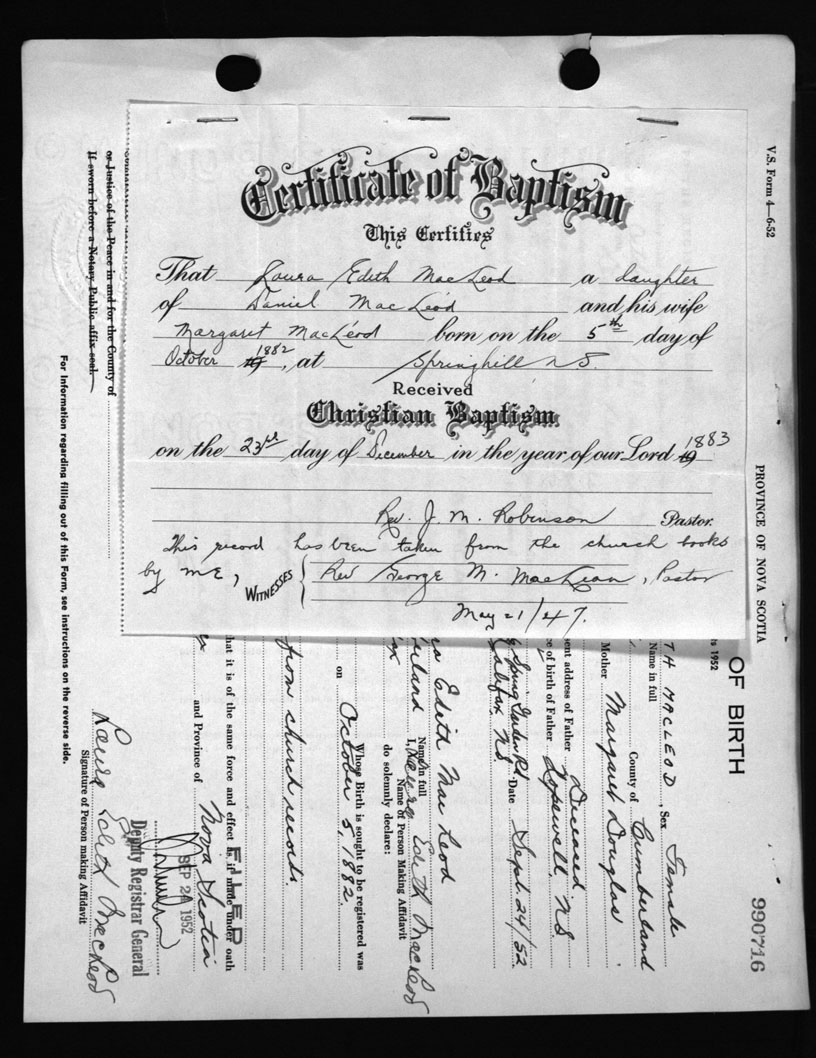 Certificate of Baptism
This Certifies
That Laura Edith MacLeod a daughter
of Daniel MacLeod and his wife
Margaret MacLeod born on the 5th day of
October 19 1882, at Springhill N.S.
Received
Christian Baptism
on the 23rd day of December in the year of our Lord 19 1883
Rev. J. M. Robinson Pastor.
This record has been taken from the church books
by me, WITNESSES { Rev George M. MacLean, Pastor
May 21/47.
V.S. Form 4—6-52
PROVINCE OF NOVA SCOTIA
OF BIRTH
990716
1952
TH MACLEOD, Sex Female
Name in full
County of Cumberland
Mother Margaret Douglas
ent address of Father Deceased
ce of birth of Father Hopewell, NS
Spring Garden Rd Date Sept. 24/52
Halifax NS
Edith MacLeod
Name in full
erland I, Laura Edith MacLeod
Name of Person Making Affidavit
do solemnly declare:
Whose Birth is sought to be registered was
on October 5, 1882
from church records.
hat it is of the same force and effect as if made under oath
and Province of Nova Scotia
FILED
SEP 24 1952
Deputy Registrar General
Laura Edith MacLeod
Signature of Person making Affidavit
If sworn before a Notary Public affix seal.
or Justice of the Peace in and for the County of
For Information regarding filling out of this Form, see instructions on the reverse side.